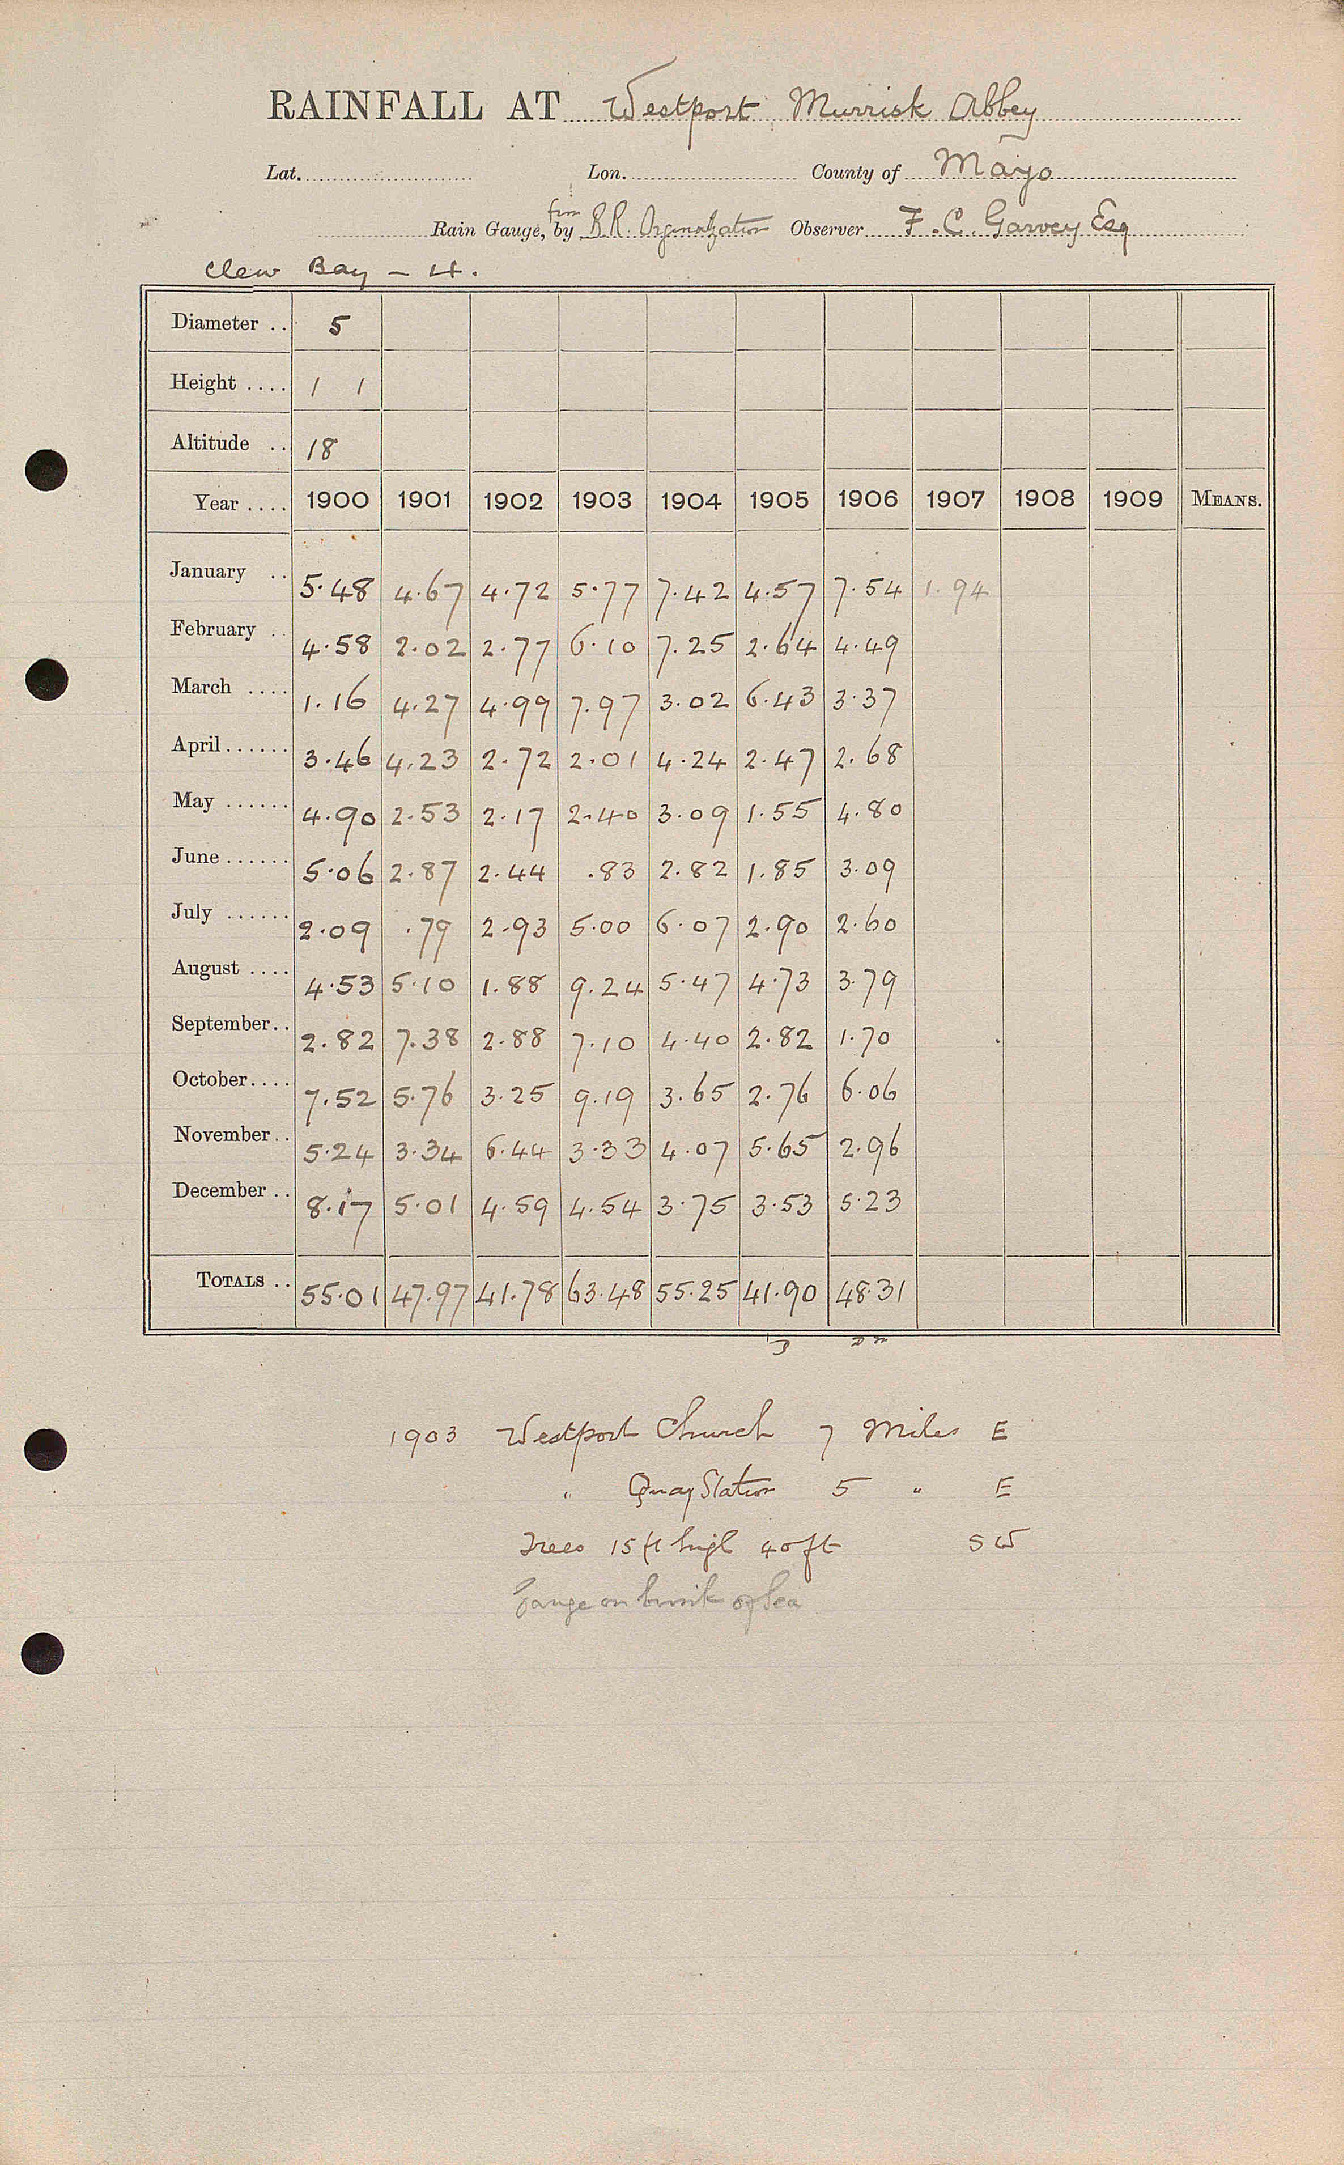 RAINFALL AT Westport, Murrisk Abbey
Lat. Lon. County of Mayo
Rain Gauge, from by B.R. Organization Observer F. C. Garvey Esq
Clew Bay - 4.
Diameter .. 5
Height .... 1 1
Altitude .. 18
Year .... 1900 1901 1902 1903 1904 1905 1906 1907 1908 1909 MEANS.
January .. 5.48 4.67 4.72 5.77 7.42 4.57 7.54 1.94
February .. 4.58 2.02 2.77 6.10 7.25 2.64 4.49
March .... 1.16 4.27 4.99 7.97 3.02 6.43 3.37
April ...... 3.46 4.23 2.72 2.01 4.24 2.47 2.68
May ...... 4.90 2.53 2.17 2.40 3.09 1.55 4.80
June ...... 5.06 2.87 2.44 .83 2.82 1.85 3.09
July ...... 2.09 .79 2.93 5.00 6.07 2.90 2.60
August .... 4.53 5.10 1.88 9.24 5.47 4.73 3.79
September.. 2.82 7.38 2.88 7.10 4.40 2.82 1.70
October.... 7.52 5.76 3.25 9.19 3.65 2.76 6.06
November.. 5.24 3.34 6.44 3.33 4.07 5.65 2.96
December .. 8.17 5.01 4.59 4.54 3.75 3.53 5.23
TOTALS .. 55.01 47.97 41.78 63.48 55.25 41.90 48.31
1903 Westport Church 7 Miles E
" Quay Station 5 " E
Trees 15 ft high 40 ft SW
Gauge on brink of Sea